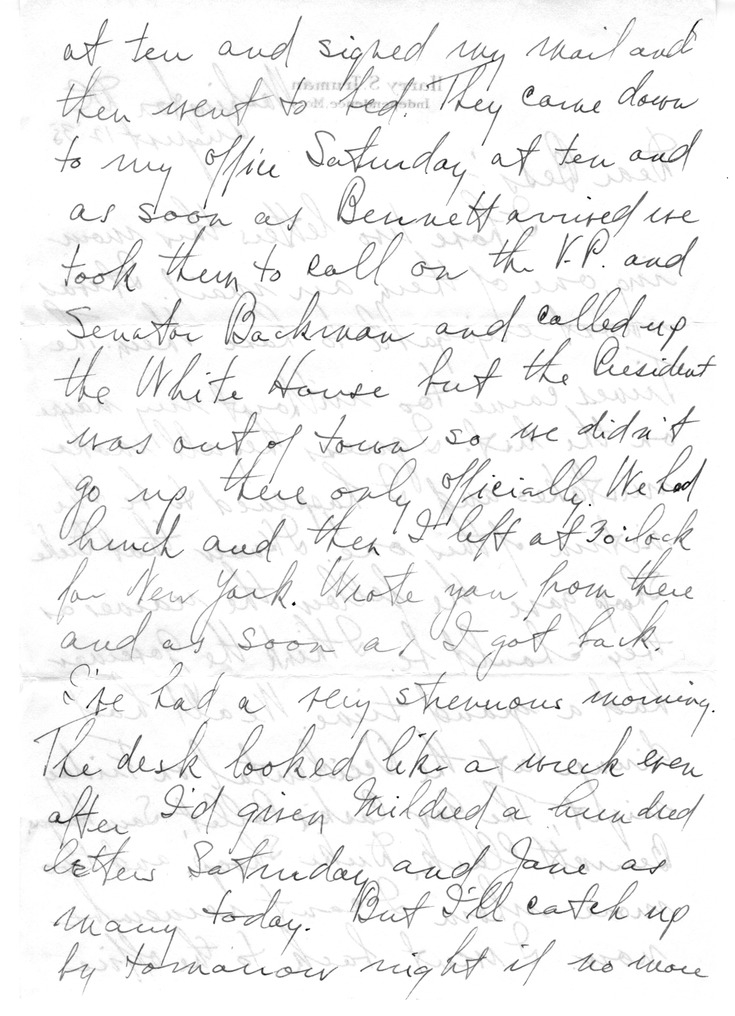 at ten and signed my mail and
then went to bed. They came down
to my office Saturday at ten and
as soon as Bennett arrived we
took them to call on the V.P. and
Senator Backman and called up
the White House but the President
was out of town so we didn't
go up there only officially. We had
lunch and then I left at 3 o'clock
for New York. Wrote you from there
and as soon as I got back.
I've had a very strenuous morning.
The desk looked like a wreck even
after I'd given Mildred a hundred
letters Saturday and Jane as
many today. But I'll catch up
by tomorrow night if no more